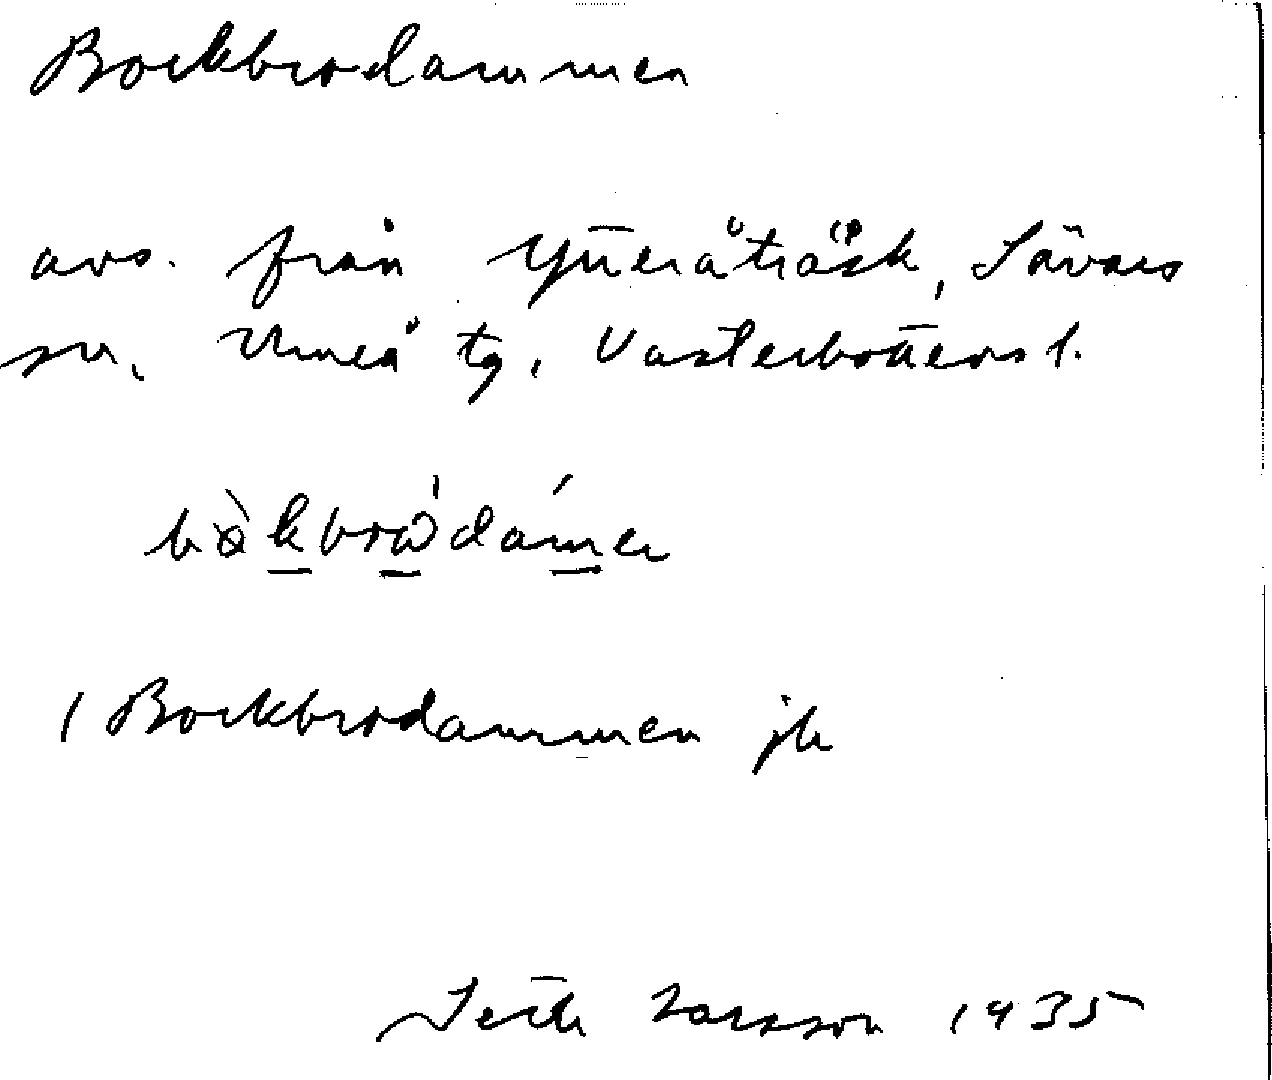 Bockbrodammen
avs. från Ytteråträsk, Sävars
sn, Umeå tg, Västerbottens l.
1 Bockbrodammen jb
Seth Larsson 1935